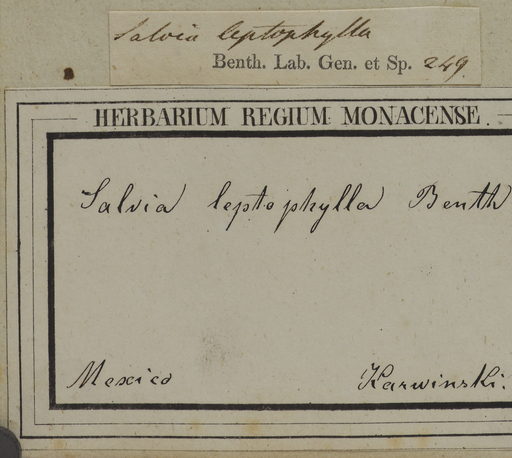 Salvia leptophylla
Benth. Lab. Gen. et Sp. 249.
HERBARIUM REGIUM MONACENSE.
Salvia leptophylla Benth
Mexico Karwinski.